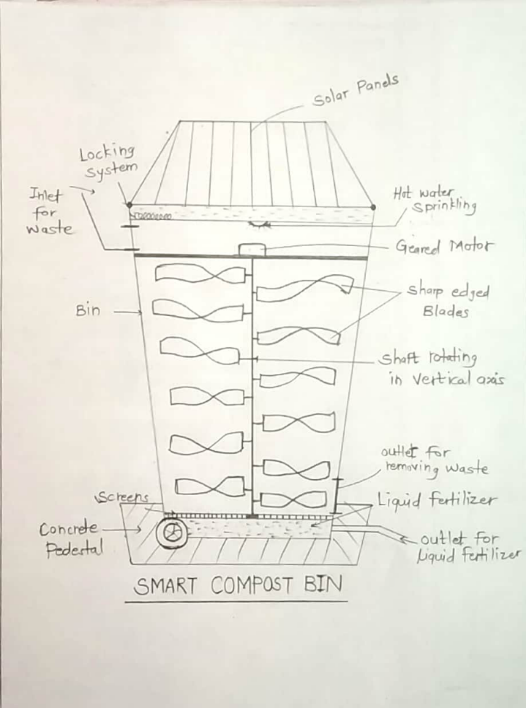 Solar Panels
Locking
System
Inlet
for
waste
Hot water
Sprinkling
Geared Motor
Sharp edged
Blades
Bin
Shaft rotating
in vertical axis
outlet for
removing waste
Screens
Liquid fertilizer
Concrete
Pedestal
outlet for
Liquid fertilizer
SMART COMPOST BIN